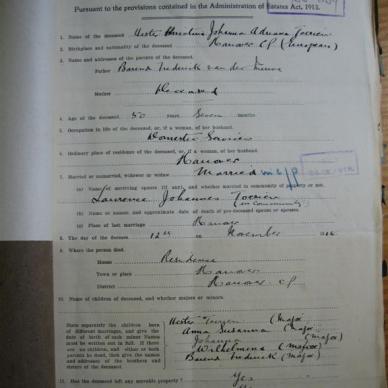 Pursuant to the provisions contained in the Administration of Estates Act, 1913.
1. Name of the deceased Hester Christina Johanna Adriana Toerien
2. Birthplace and nationality of the deceased Hanover CP (European)
3. Names and addresses of the parents of the deceased:
Father Barend Frederick van der
Mother Deceased
4. Age of the deceased 50 years Seven months
5. Occupation in life of the deceased, or, if a woman, of her husband
Domestic
6. Ordinary place of residence of the deceased, or, if a woman, of her husband
Hanover
7. Married or unmarried, widower or widow Married
(a) Name of surviving spouse (if any), and whether married in community of property or not.
Johannes Toerien
(in Community)
(b) Name or names, and approximate date of death of pre-deceased spouse or spouses
(c) Place of last marriage Hanover
8. The day of the decease 12th November
9. Where the person died.
House Residence
Town or place Hanover
District Hanover CP
10. Names of children of deceased, and whether majors or minors.
State separately the children born of different marriages, and give the date of birth of each minor. Names must be written in full. If there are no children, and either or both parents be dead, then give the names and addresses of the brothers and sisters of the deceased.
Hester (major)
Anna Susanna (major)
Johanna (major)
Wilhelmina (major)
Barend Frederick (major)
11. Has the deceased left any movable property? Yes